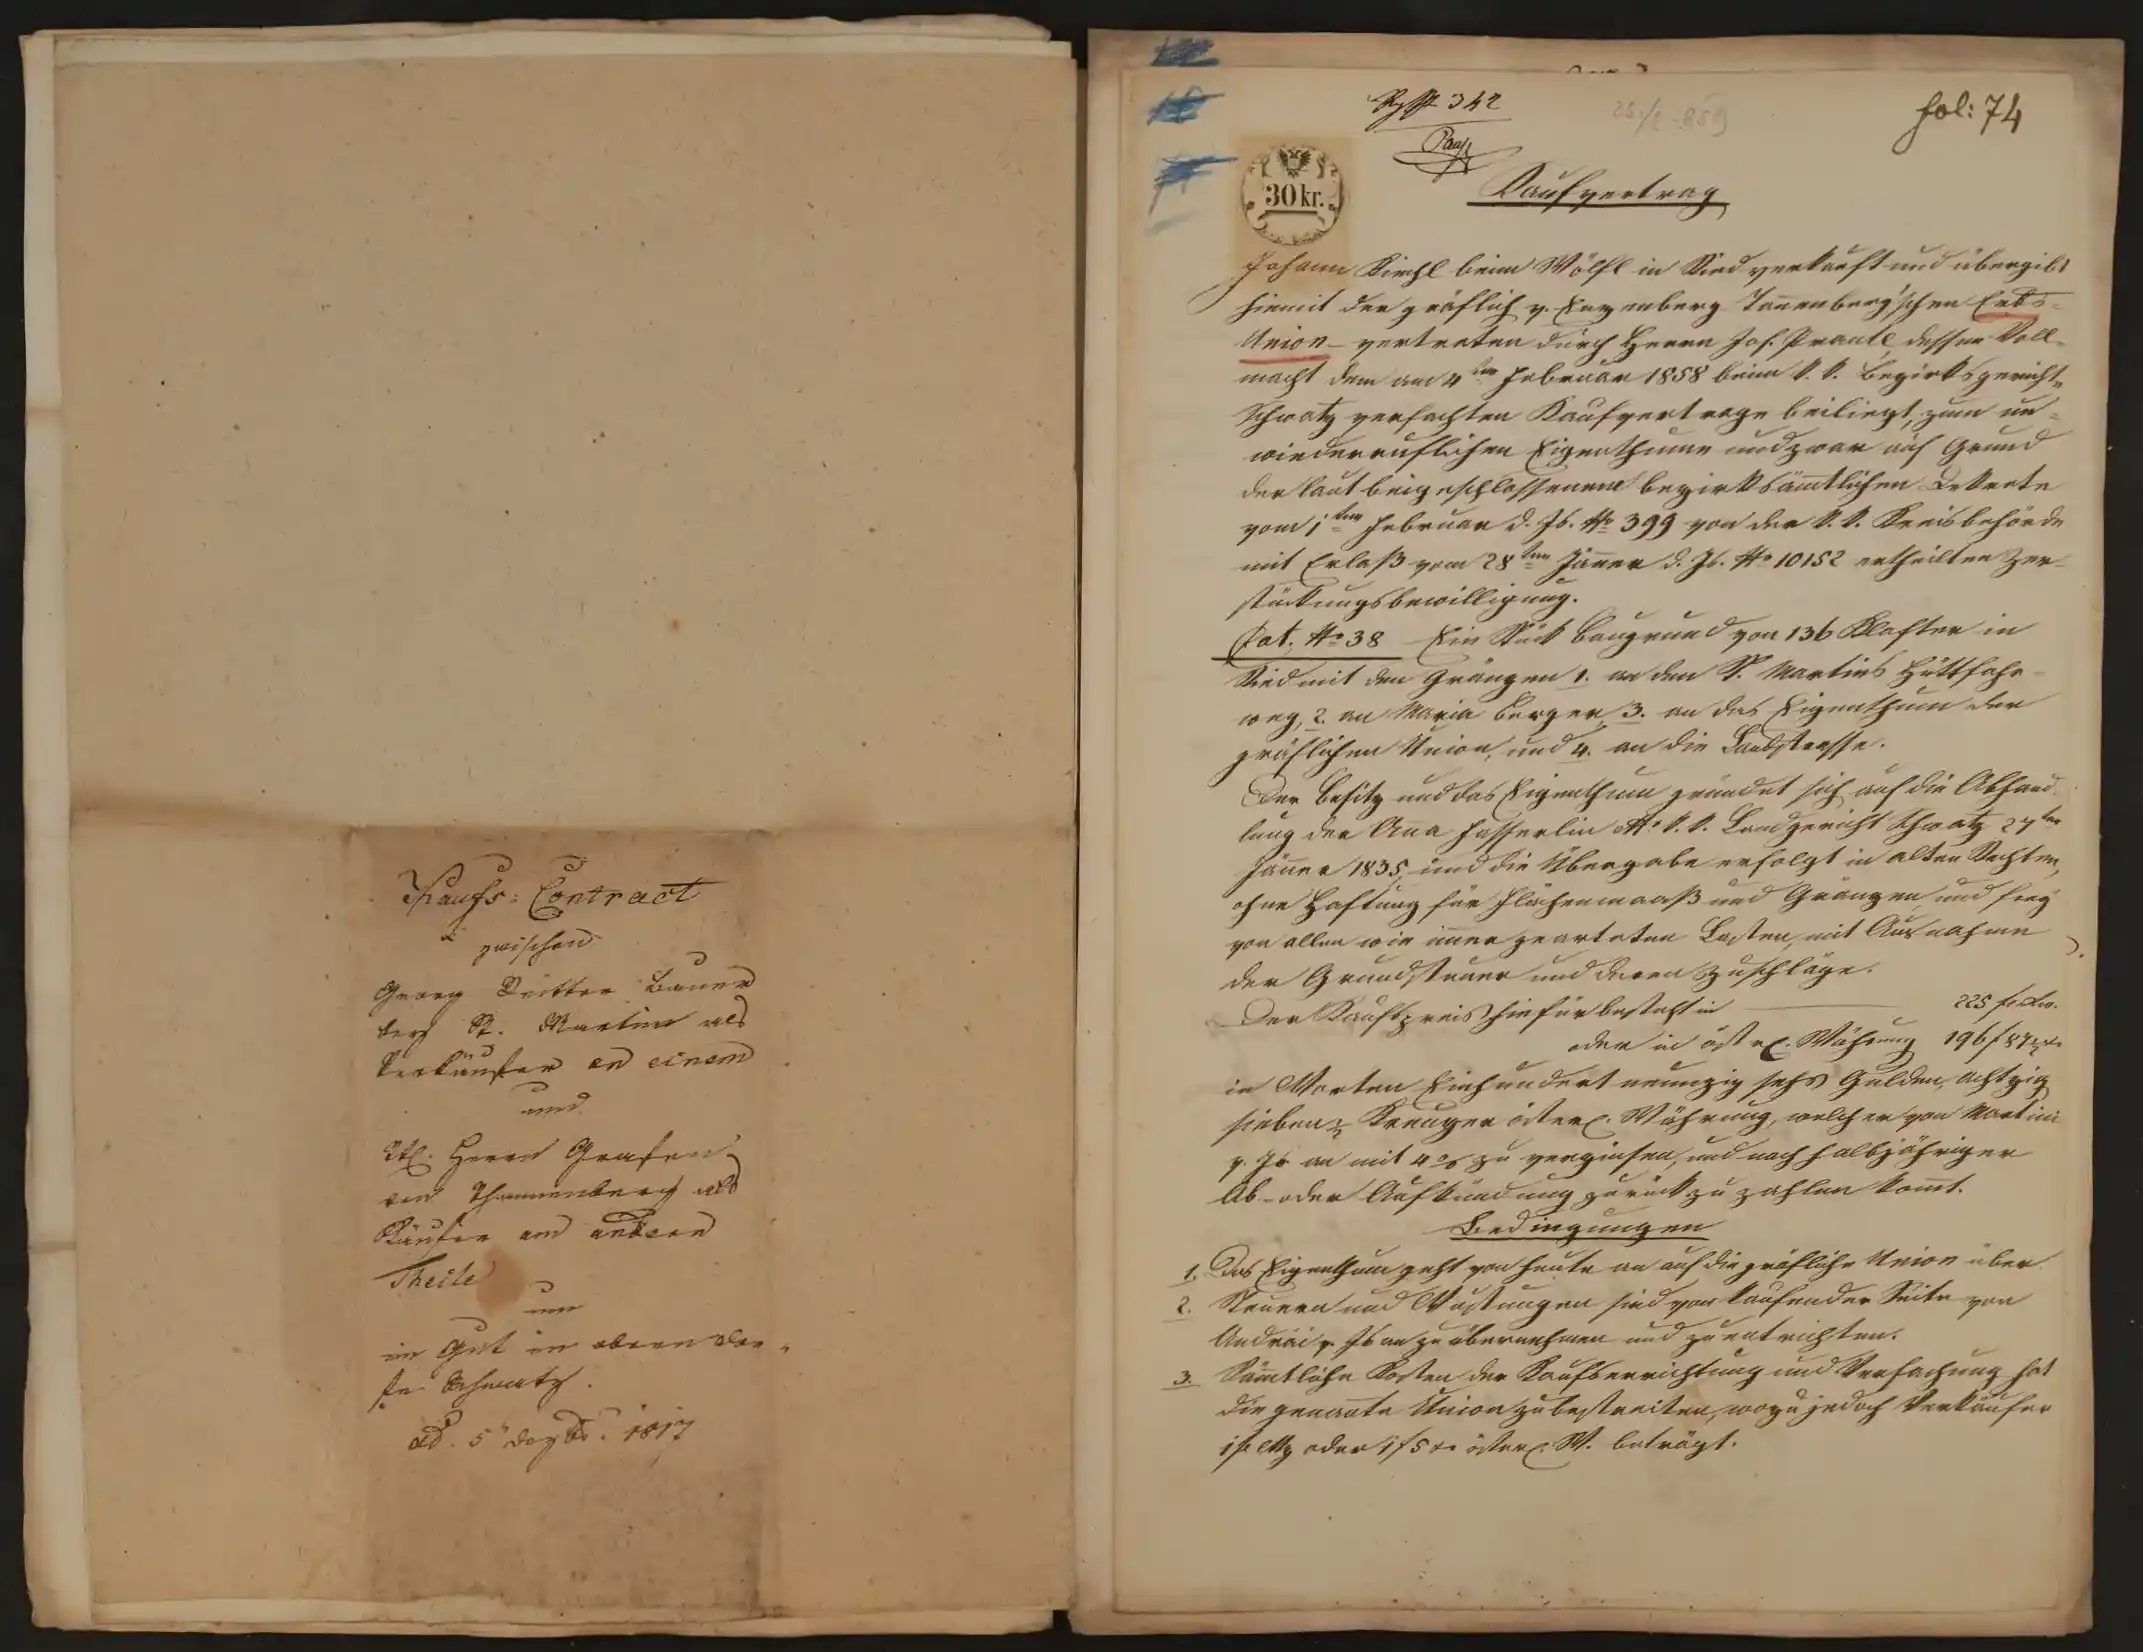 Kaufs-Contract
zwischen
Georg Ritter Bauer
bey St. Martin als
Verkäufer an einem
und
Titl. Herrn Grafen
von Thannenberg als
Käufer am andern
Theile
um
ein Gut im obern Dor-
fe Schwatz.
dd. 5t 1817
342
fol: 74
30 kr.
Kaufvertrag
Johann Kirchl beim Wölfl in Ried verkauft und übergibt
hiemit der gräflich v. Enzenberg Tannenberg'schen Erbs-
Union – vertreten durch Herrn Jos. Prantl, dessen Voll-
macht dem am 4ten Februar 1858 beim k. k. Bezirksgerichte
Schwatz verfachten Kaufvertrage beiliegt, zum un-
wiederruflichen Eigenthume und zwar auf Grund
der laut beigeschlossenem bezirksämtlichen Dekrete
vom 1ten Februar d. Js. No 399 von der k. k. Kreisbehörde
mit Erlaß vom 28ten Jänner d. Js. No 10152 ertheilten Zer-
stückungsbewilligung.
Cat. No 38 Ein Stück Baugrund von 136 Klafter in
Ried mit den Gränzen 1. an den St. Martins Hüttfahr-
weg, 2. an Maria Berger, 3. an das Eigenthum der
gräflichen Union, und 4. an die Landstrasse.
Der Besitz und das Eigenthum gründet sich auf die Abhand-
lung der Anna Hasserlin k. k. Landgericht Schwatz 27ten
Jänner 1835, und die Übergabe erfolgt in alten Rechten,
ohne Haftung für Flächenmaaß und Gränzen, und frey
von allen wie immer gearteten Lasten, mit Ausnahme
der Grundsteuer und deren Zuschläge.
Der Kaufspreis hiefür besteht in 225 f
oder in österr. Währung 196 f 87
in Worten Einhundert neunzig sechs Gulden, achtzig
sieben Kreuzer österr. Währung, welcher von Martini
v. Js an mit 4 % zu verzinsen, und nach halbjähriger
Ab- oder Aufkündung zurück zu zahlen kommt.
Bedingungen
1. Das Eigenthum geht von heute an auf die gräfliche Union über.
2. Steuern und Wustungen sind von kaufender Seite von
Andräi v. Js an zu übernehmen und zu entrichten.
3. Sämmtliche Kosten der Kaufserrichtung und Verfachung hat
die genannte Union zu bestreiten, wozu jedoch Verkäufer
1 f oder 1 f 5 österr. W. beträgt.